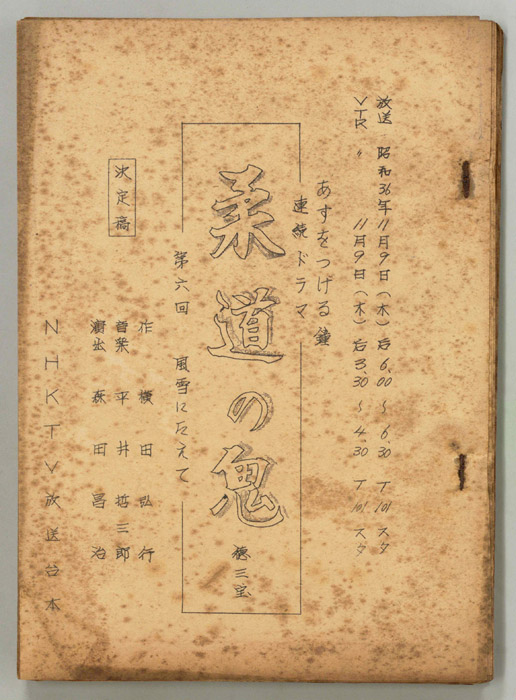 放送 昭和36年11月9日(木)后6.00~6.30 T101スタ
VTR 〃 11月9日(木)后3.30~4.30 T101スタ
あすをつげる鐘
連続ドラマ
柔道の鬼
徳三宝
第六回 風雪にたえて
決定稿
作 横田弘行
音楽 平井哲三郎
演出 森田昌治
NHKTV放送台本